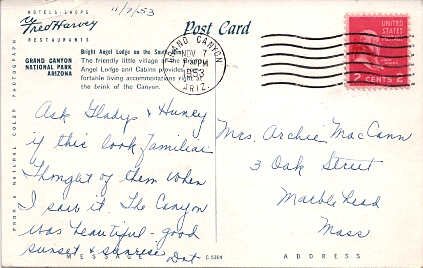 11/7/53
HOTELS - SHOPS
Fred Harvey
RESTAURANTS
Post Card
GRAND CANYON
NATIONAL PARK
ARIZONA
Bright Angel Lodge on the South Rim
The friendly little village of the Bright
Angel Lodge and Cabins provides com-
fortable living accommodations right at
the brink of the Canyon.
GRAND CANYON
NOV 7
PM
1953
ARIZ.
UNITED
STATES
POSTAGE
2 CENTS 2
FROM A NATURAL COLOR PHOTOGRAPH
Ask Gladys & Huney
if this look familiar
Thought of them when
I saw it. The Canyon
was beautiful - good
sunset & sunrise Dot
Mrs. Archie MacCann
3 Oak Street
Marble Head
Mass
MESSAGE
C-5304
ADDRESS